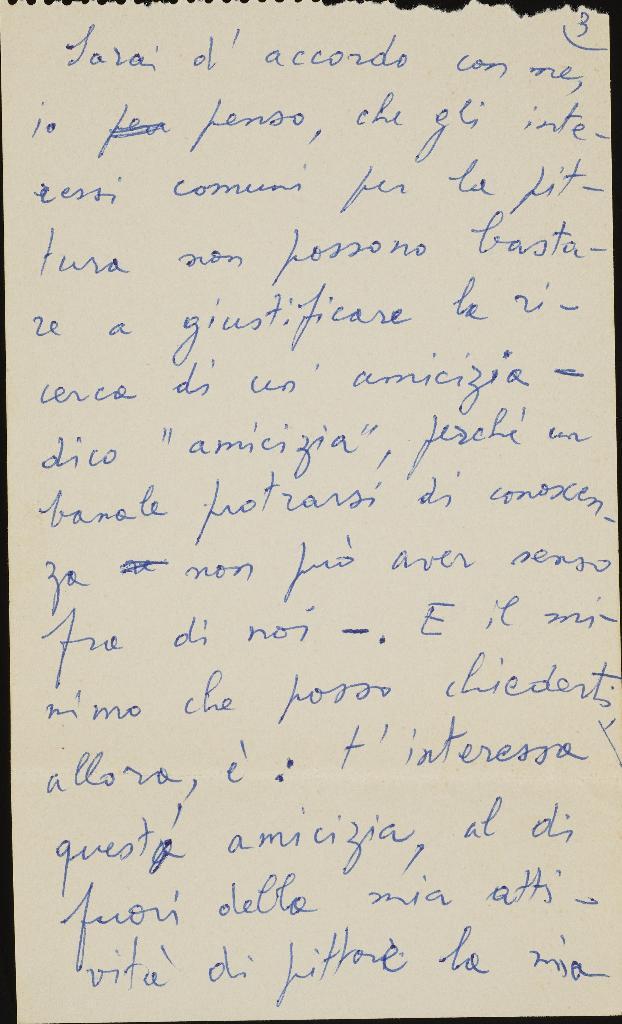 3
Sarai d'accordo con me,
io penso, che gli inte-
ressi comuni per la pit-
tura non possono basta-
re a giustificare la ri-
cerca di un'amicizia -
dico "amicizia", perché un
banale protrarsi di conoscen-
za non può aver senso
fra di noi -. E il mi-
nimo che posso chiederti,
allora, è : t'interessa
questa amicizia, al di
fuori della mia atti-
vità di pittore la mia